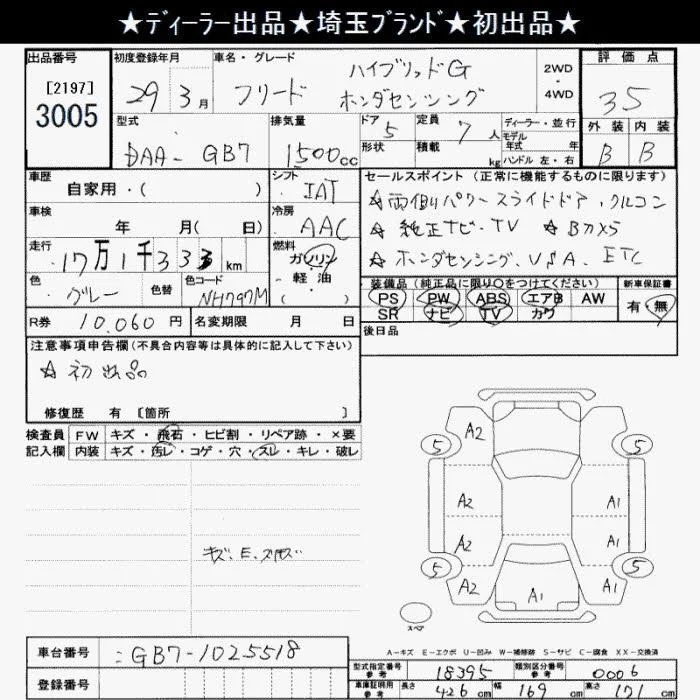 ★ディーラー出品★埼玉ブランド★初出品★
出品番号 初度登録年月 車名・グレード 評価点
[2197] 29年 3月 フリード ハイブリッドG 2WD・4WD 35
3005 ホンダセンシング
型式 排気量 ドア 5 定員 7人 ディーラー・並行 外装 内装
DAA-GB7 1500cc 形状 積載 kg モデル年式 年 ハンドル 左・右 B B
車歴 シフト セールスポイント(正常に機能するものに限ります)
自家用・( ) IAT ☆両側パワースライドドア、クルコン
車検 冷房 ☆純正ナビ・TV ☆Bカメラ
年 月( 日) AAC ☆ホンダセンシング、VSA、ETC
走行 燃料
17万1千333km ガソリン・軽油
色 色替 色コード ( ) 装備品(純正品に限り○をつけてください) 新車保証書
グレー NH797M PS PW ABS エアB AW 有・無
R券 10,060円 名変期限 月 日 SR ナビ TV カワ
注意事項申告欄(不具合内容等は具体的に記入して下さい) 後日品
☆初出品
修復歴 有 [箇所 ]
検査員 FW キズ・飛石・ヒビ割・リペア跡・×要
記入欄 内装 キズ・汚レ・コゲ・穴・スレ・キレ・破レ
A2
5 5
A2 A1
A2 A1
5 5
A2 A1 A1
キズ、E、
スペア
A-キズ E-エクボ U-凹み W-補修跡 S-サビ C-腐食 XX-交換済
車台番号 :GB7-1025518
登録番号
型式指定番号 参考 18395 類別区分番号 参考 0006
車庫証明用 参考 長さ 426cm 幅 169cm 高さ 171cm